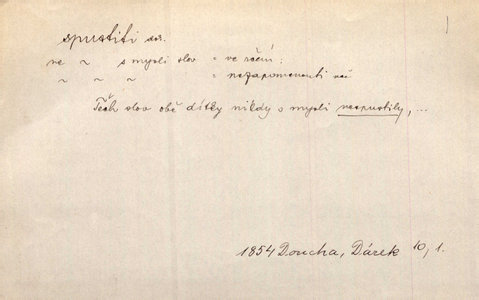 spustiti
ne ~ s mysli slov = ve rčení:
~ ~ ~ = nezapomenouti
Těch slov obě dítky nikdy s mysli nespustily, ...
1854 Doucha, Dárek 10, 1.